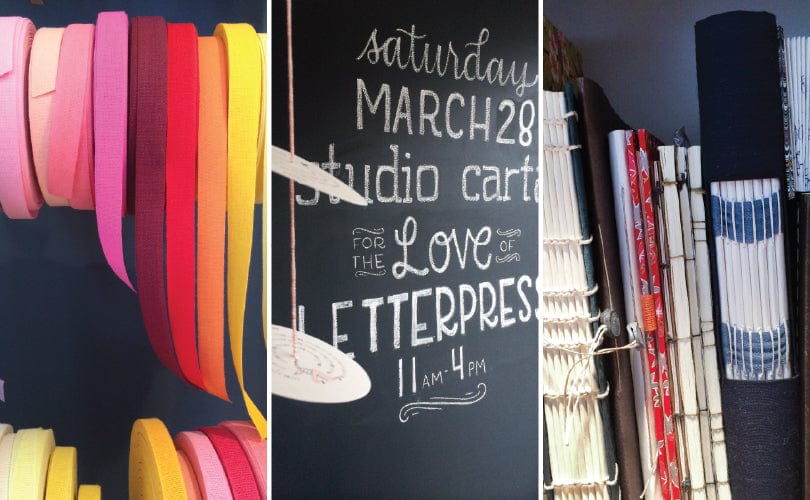 saturday
MARCH 28
studio carta
FOR THE Love OF
LETTERPRESS
11 AM - 4 PM